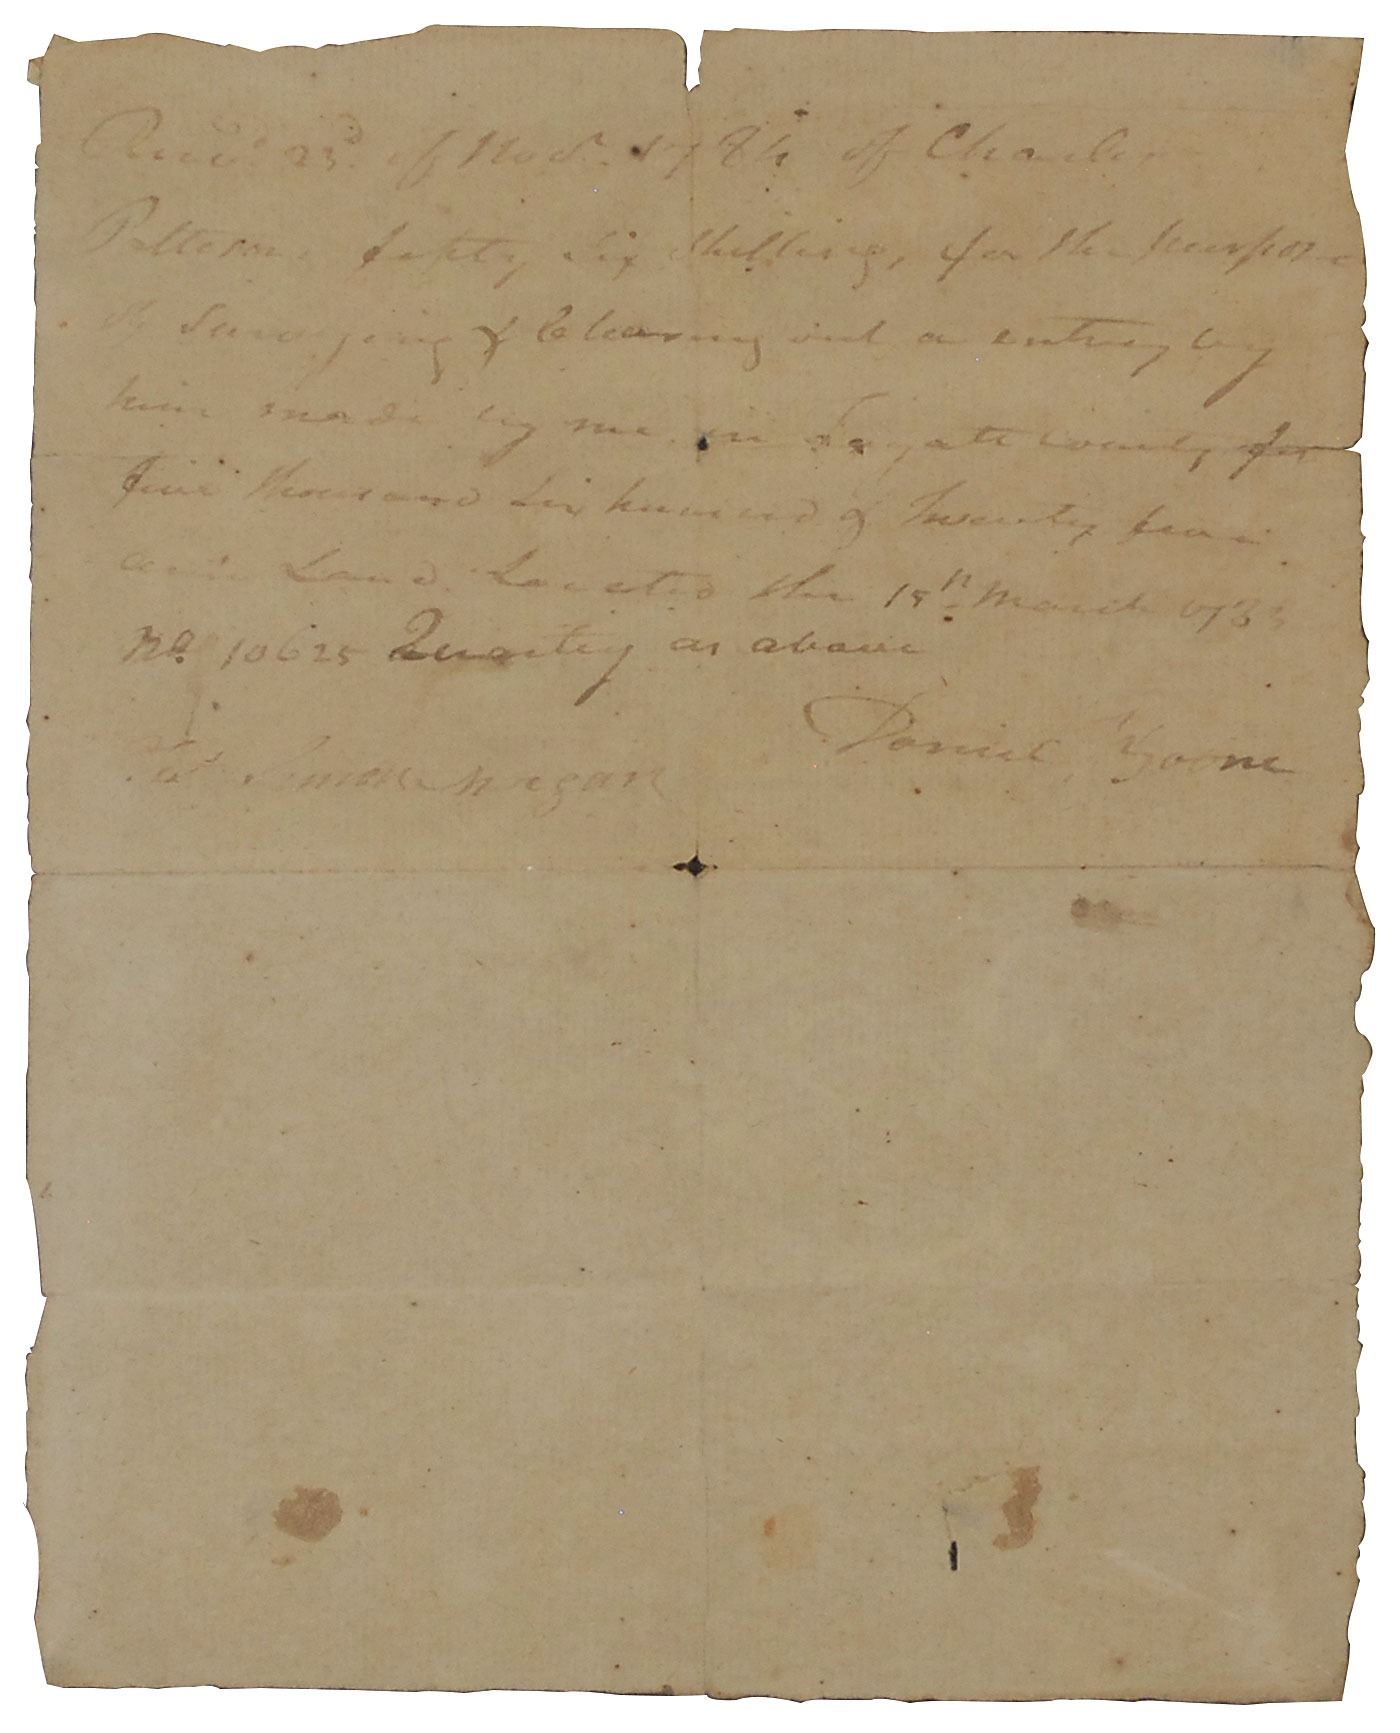 Recd. 23d. of Nov. 1784 of Charles
Patteson fifty Six Shillings, for the purpose
of Surveying & Clearing out a entrey by
him made by me in Fayatte County for
five thousand Six hundred & Twenty four
acres Land Located the March 1783
No. 10625 Quantity as above
Daniel Boone
Morgan